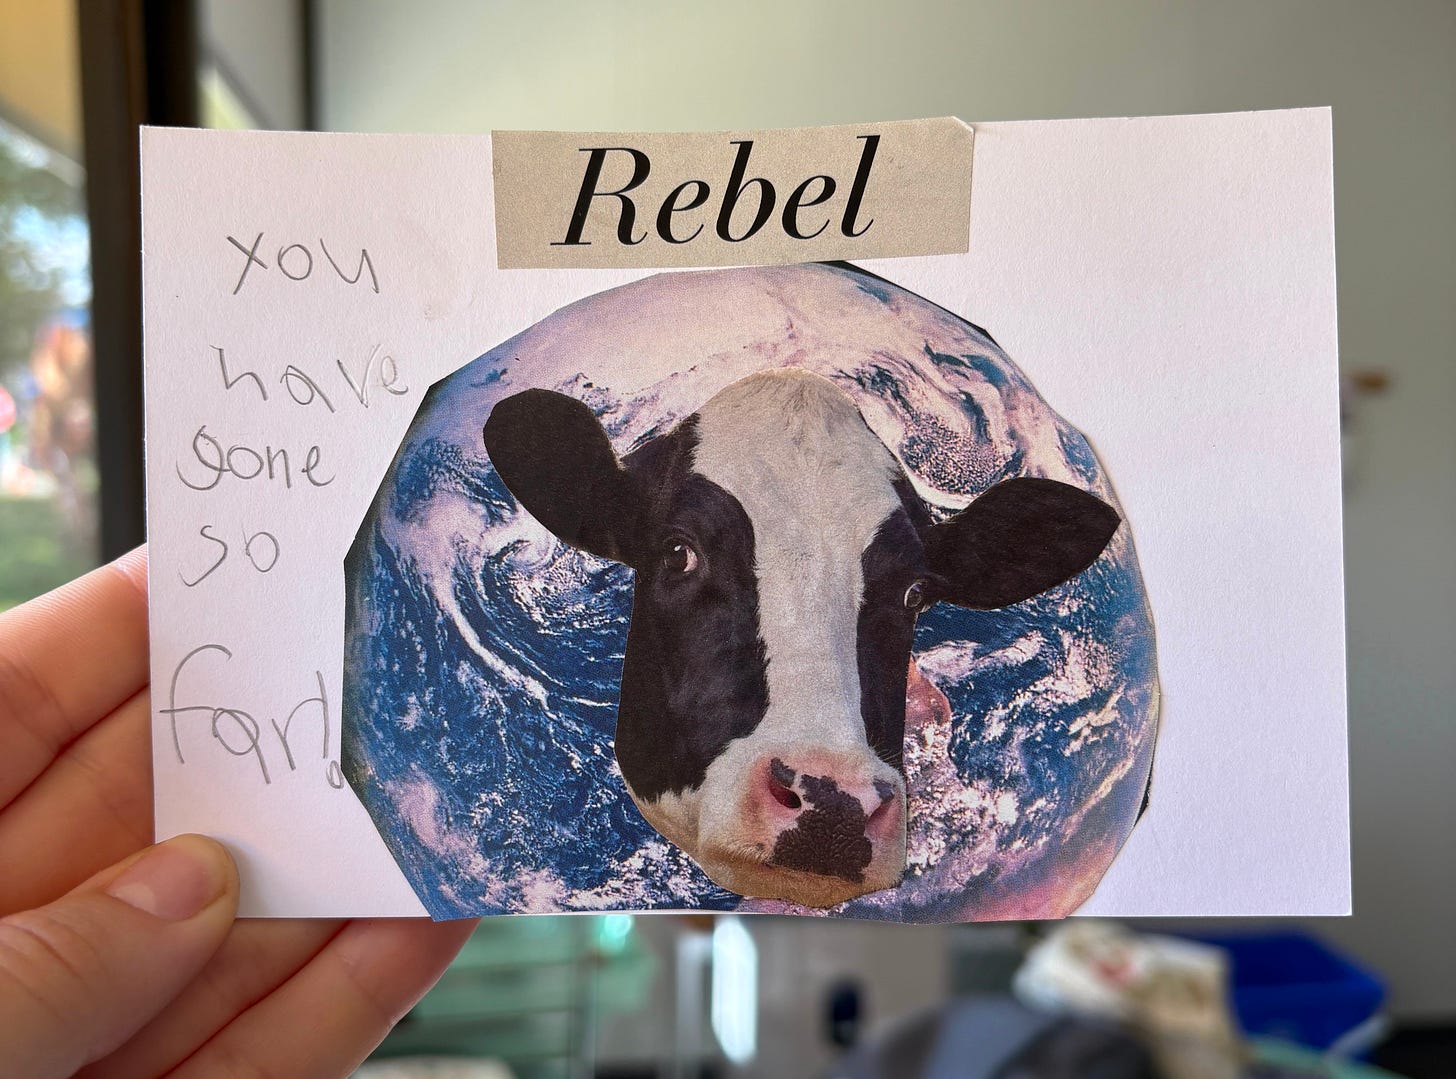 Rebel
you
have
gone
so
far!